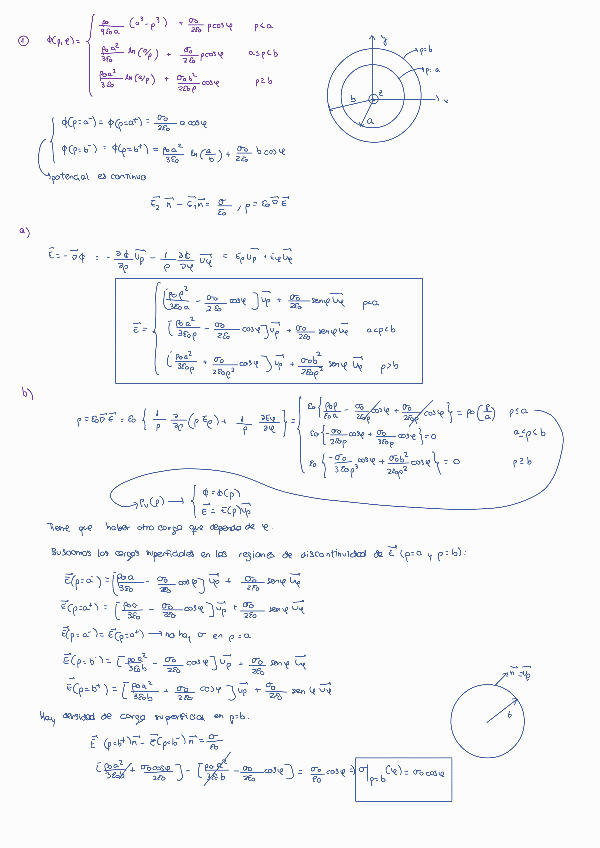 ① ϕ(ρ,φ) = { ρ₀/9ε₀a (a³-ρ³) + σ₀/2ε₀ ρcosφ ρ<a
ρ₀a²/3ε₀ ln(a/ρ) + σ₀/2ε₀ ρcosφ a≤ρ≤b
ρ₀a²/3ε₀ ln(a/ρ) + σ₀b²/2ε₀ρ cosφ ρ≥b
y ρ=b ρ=a b z x a
ϕ(ρ=a⁻) = ϕ(ρ=a⁺) = σ₀/2ε₀ a cosφ
ϕ(ρ=b⁻) = ϕ(ρ=b⁺) = ρ₀a²/3ε₀ ln(a/b) + σ₀/2ε₀ b cosφ
potencial es continuo
E₂ n - E₁ n = σ/ε₀ , ρ = ε₀ ∇ E
a)
E = -∇ϕ = -∂ϕ/∂ρ uρ - 1/ρ ∂ϕ/∂φ uφ = Eρuρ + Eφuφ
E = { [ρ₀ρ²/3ε₀a - σ₀/2ε₀ cosφ] uρ + σ₀/2ε₀ senφ uφ ρ<a
[ρ₀a²/3ε₀ρ - σ₀/2ε₀ cosφ] uρ + σ₀/2ε₀ senφ uφ a<ρ<b
[ρ₀a²/3ε₀ρ + σ₀/2ε₀ρ² cosφ] uρ + σ₀b²/2ε₀ρ² senφ uφ ρ>b
b)
ρ = ε₀∇E = ε₀ { 1/ρ ∂/∂ρ (ρ Eρ) + 1/ρ ∂Eφ/∂φ } = { ε₀{ρ₀ρ/ε₀a - σ₀/2ε₀ρ cosφ + σ₀/2ε₀ρ cosφ} = ρ₀(ρ/a) ρ≤a
ε₀{-σ₀/2ε₀ρ cosφ + σ₀/2ε₀ρ cosφ} = 0 a≤ρ≤b
ε₀{-σ₀/3ε₀ρ³ cosφ + σ₀b²/2ε₀ρ² cosφ} = 0 ρ≥b
ρv(ρ) → { ϕ = ϕ(ρ)
E = E(ρ)uρ
Tiene que haber otra carga que dependa de φ.
Buscamos las cargas superficiales en las regiones de discontinuidad de E (ρ=a y ρ=b):
E(ρ=a⁻) = [ρ₀a/3ε₀ - σ₀/2ε₀ cosφ] uρ + σ₀/2ε₀ senφ uφ
E(ρ=a⁺) = [ρ₀a/3ε₀ - σ₀/2ε₀ cosφ] uρ + σ₀/2ε₀ senφ uφ
E(ρ=a⁻) = E(ρ=a⁺) → no hay σ en ρ=a
E(ρ=b⁻) = [ρ₀a²/3ε₀b - σ₀/2ε₀ cosφ] uρ + σ₀/2ε₀ senφ uφ
E(ρ=b⁺) = [ρ₀a²/3ε₀b + σ₀/2ε₀ cosφ] uρ + σ₀/2ε₀ sen φ uφ
n = uρ
b
Hay densidad de carga superficial en ρ=b.
E (ρ=b⁺) n - E(ρ=b⁻) n = σ/ε₀
[ρ₀a²/3ε₀b + σ₀cosφ/2ε₀] - [ρ₀a²/3ε₀b - σ₀/2ε₀ cosφ] = σ₀/ε₀ cosφ ⇒ σ|ρ=b (φ) = σ₀ cosφ